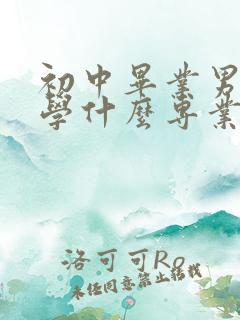 初中畢業男
學什麼專業
洛可可Ro
未经同意禁止转载